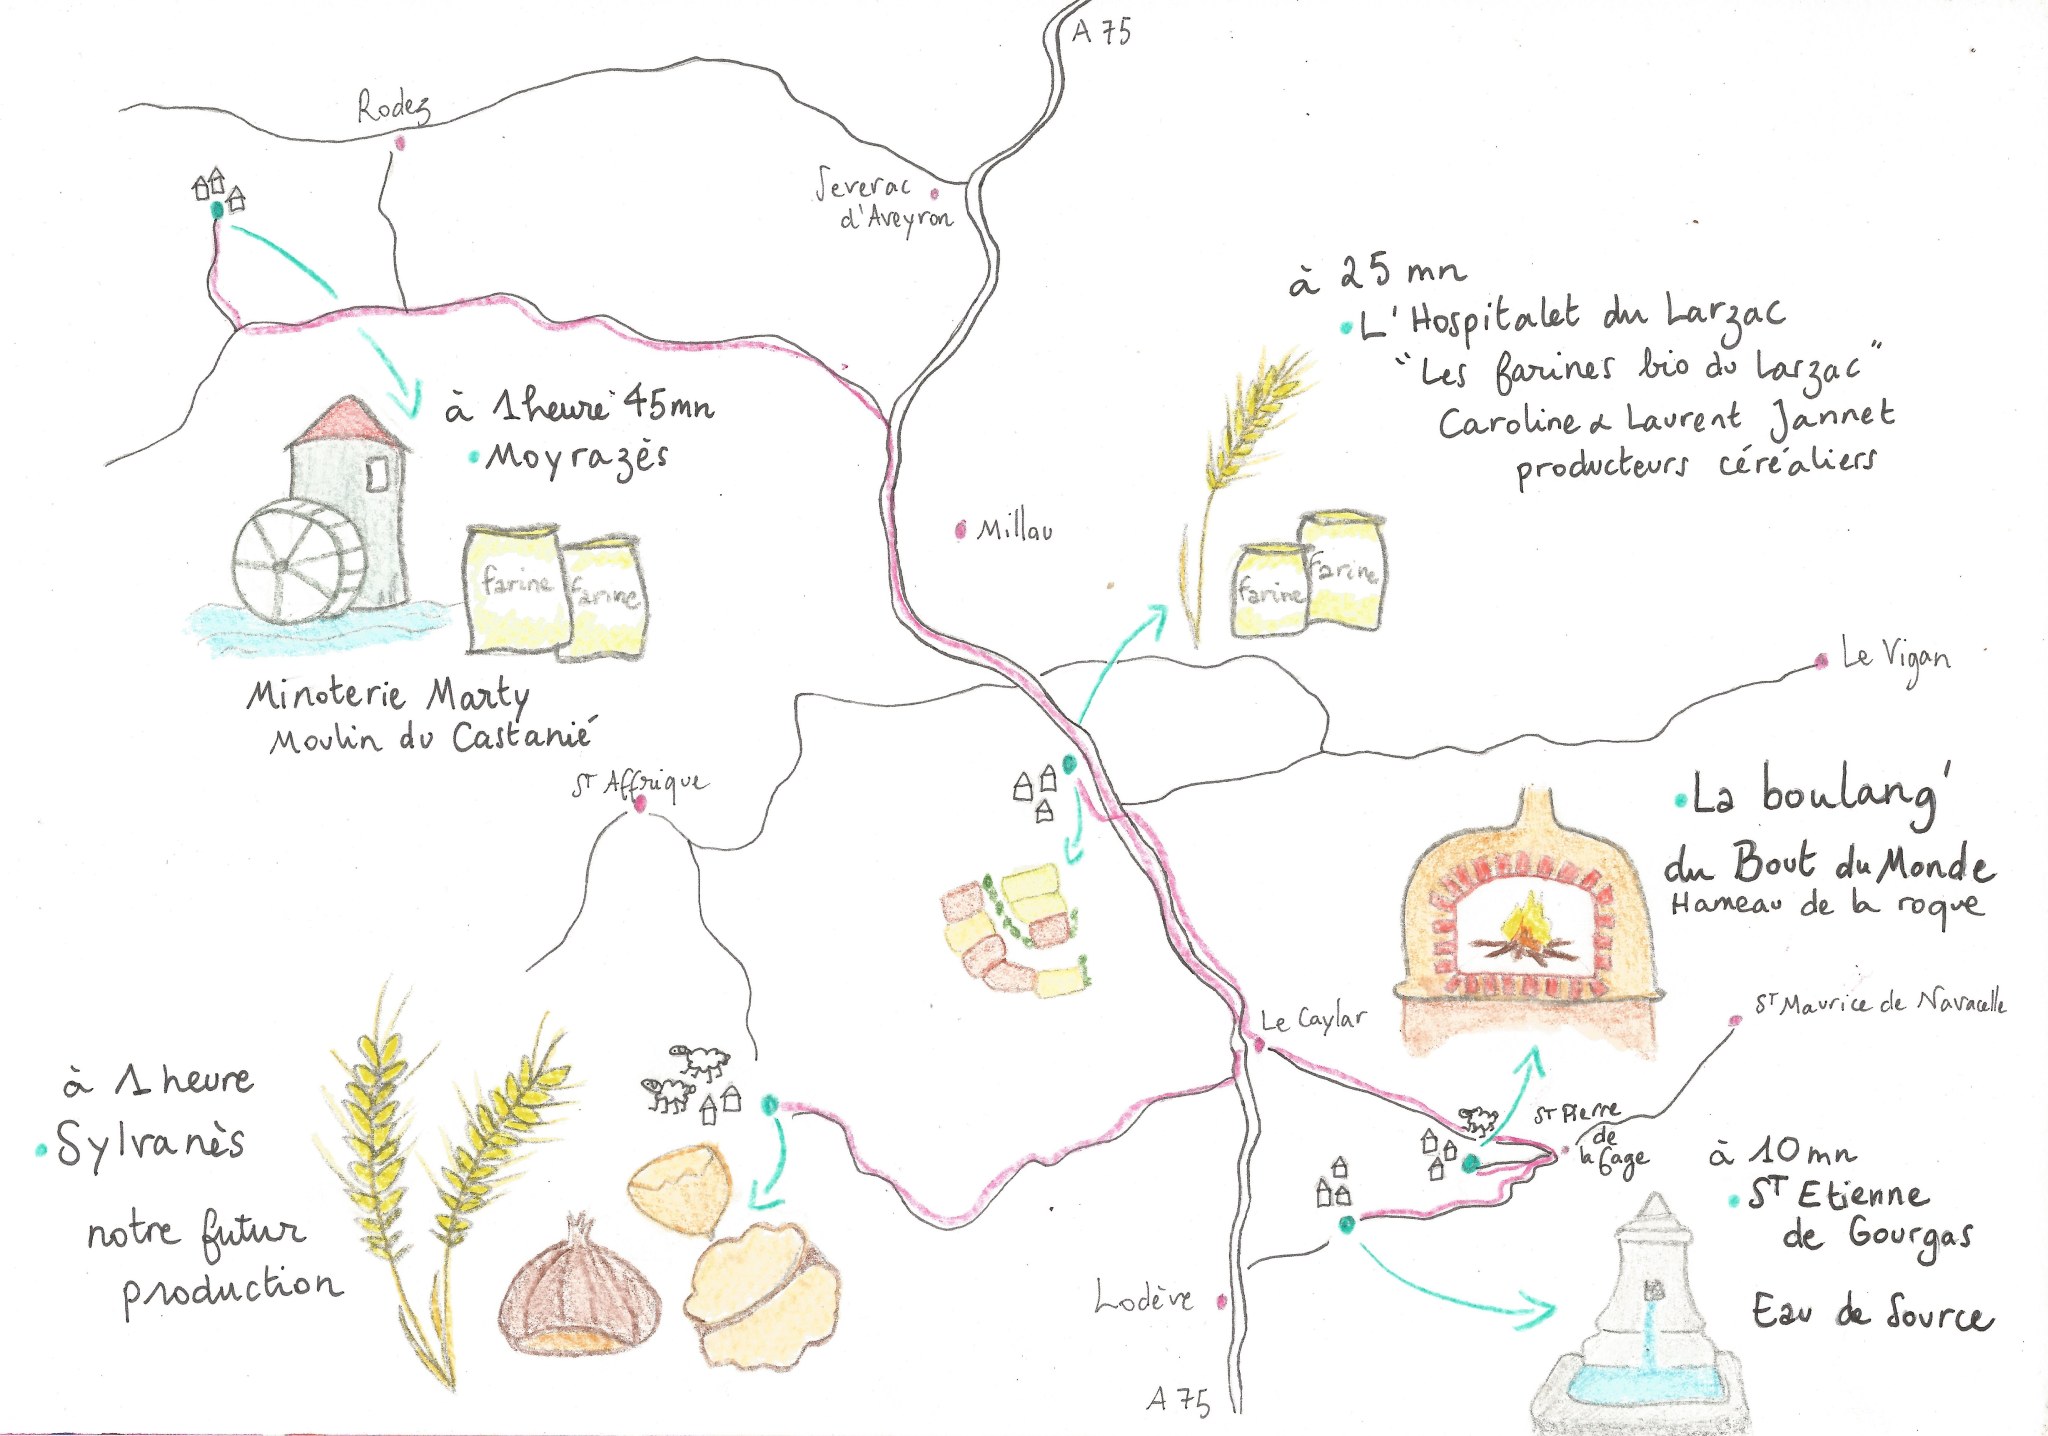 A 75
Rodez
Severac
d'Aveyron
à 25 mn
L'Hospitalet du Larzac
"Les farines bio du Larzac"
Caroline & Laurent Jannet
producteurs céréaliers
à 1 heure 45mn
Moyrazès
Millau
farine
farine
farine
farine
Le Vigan
Minoterie Marty
Moulin du Castanié
St Affrique
La boulang'
du Bout du Monde
Hameau de la roque
St Maurice de Navacelle
Le Caylar
à 1 heure
Sylvanès
notre futur
production
St Pierre
de
la fage
à 10 mn
St Etienne
de Gourgas
Eau de Source
Lodève
A 75